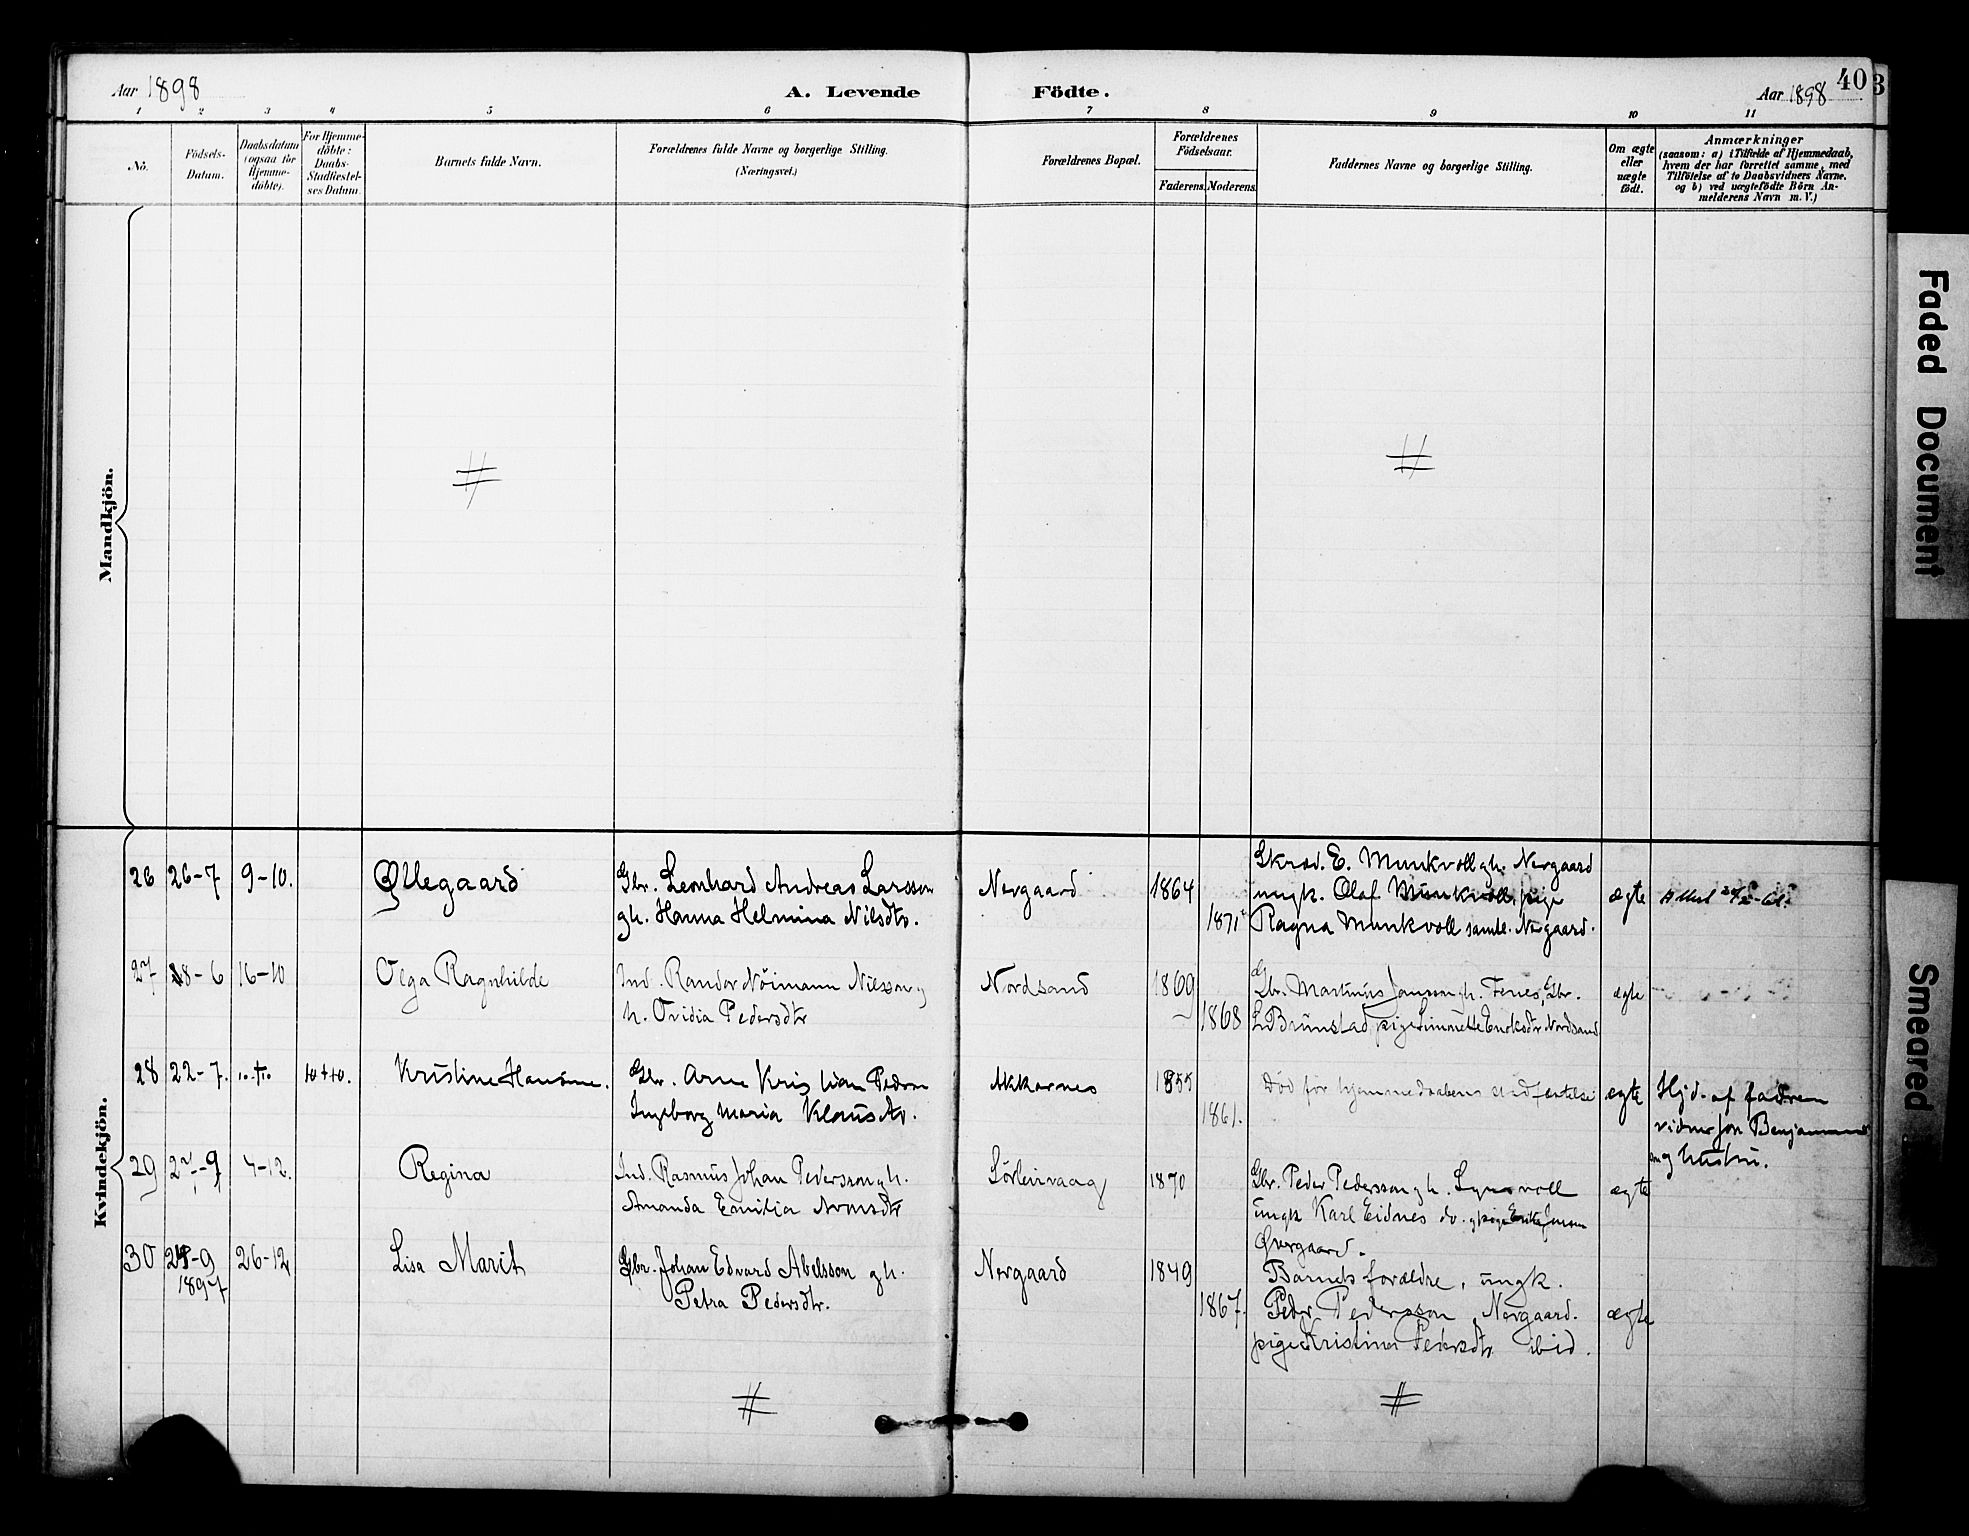 Aar 1898
A. Levende
Födte.
Aar 1898
40
3
1 2 3 4 5 6 7 8 9 10 11
No.
Födsels-
Datum.
Daabsdatum
(ogsaa for
Hjemme-
döbte).
For Hjemme-
döbte:
Daabs-
Stadfæstel-
ses Datum.
Barnets fulde Navn.
Forældrenes fulde Navne og borgerlige Stilling.
(Næringsvei.)
Forældrenes Bopæl.
Forældrenes
Födselsaar.
Faderens.
Moderens.
Faddernes Navne og borgerlige Stilling.
Om ægte
eller
uægte
födt.
Anmærkninger
(saasom: a) i Tilfælde af Hjemmedaab,
hvem der har forrettet samme, med
Tilföielse af to Daabsvidners Navne.
og b) ved uægtefödte Börn An-
melderens Navn m. V.)
Mandkjön.
Kvindekjön.
26
26-7
9-10.
Øllegaard
Gbr. Leonhard Andreas Larsson
gh. Hanna Helmina Nilsdtr.
Norgaard
1864
1871
Skræd. E. Munkvoll gh. Norgaard
ungk. Olaf Munkvoll, pige
Ragna Munkvoll samtl. Norgaard.
ægte
27
18-6
16-10
Olga Ragnhilde
Ind. Randor Nöimann Nilsson g
h. Ovidia Pedersdtr
Nordsand
1869
1868
Gbr. Martinus Jansson gh. Fenes, Gbr.
L. Brunstad, pige Nordsand
ægte
28
22-7.
Kristine Hansine.
Gbr. Arne Kristian
Ingeborg Maria Klausdtr.
Akkarnes
1855
1861.
Död för hjemmedaabens stadfæstelse
ægte
Hjd. af fadren
vidner Jon
og hustru.
29
4-12.
Regina
Ind. Rasmus Johan Pedersson gh.
Amanda Emilia
Sörleirvaag
1870
Gbr. Peder Pedersson gh.
ungk Karl Eidnes do. g pige
Övergaard.
ægte
30
24-9
1897
26-12
Lisa Marit
Gbr. Johan Edvard Abelsson gh.
Petra Pedersdtr.
Norgaard
1849
1867.
Barnets forældre, ungk.
Peder Pedersson Norgaard.
pige Kristine Pedersdtr ibid.
ægte
Faded Document
Smeared